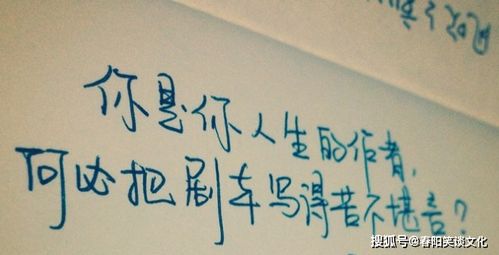 你是你人生的作者,
何必把剧本写得苦不堪言?
搜狐号@春阳笑谈文化